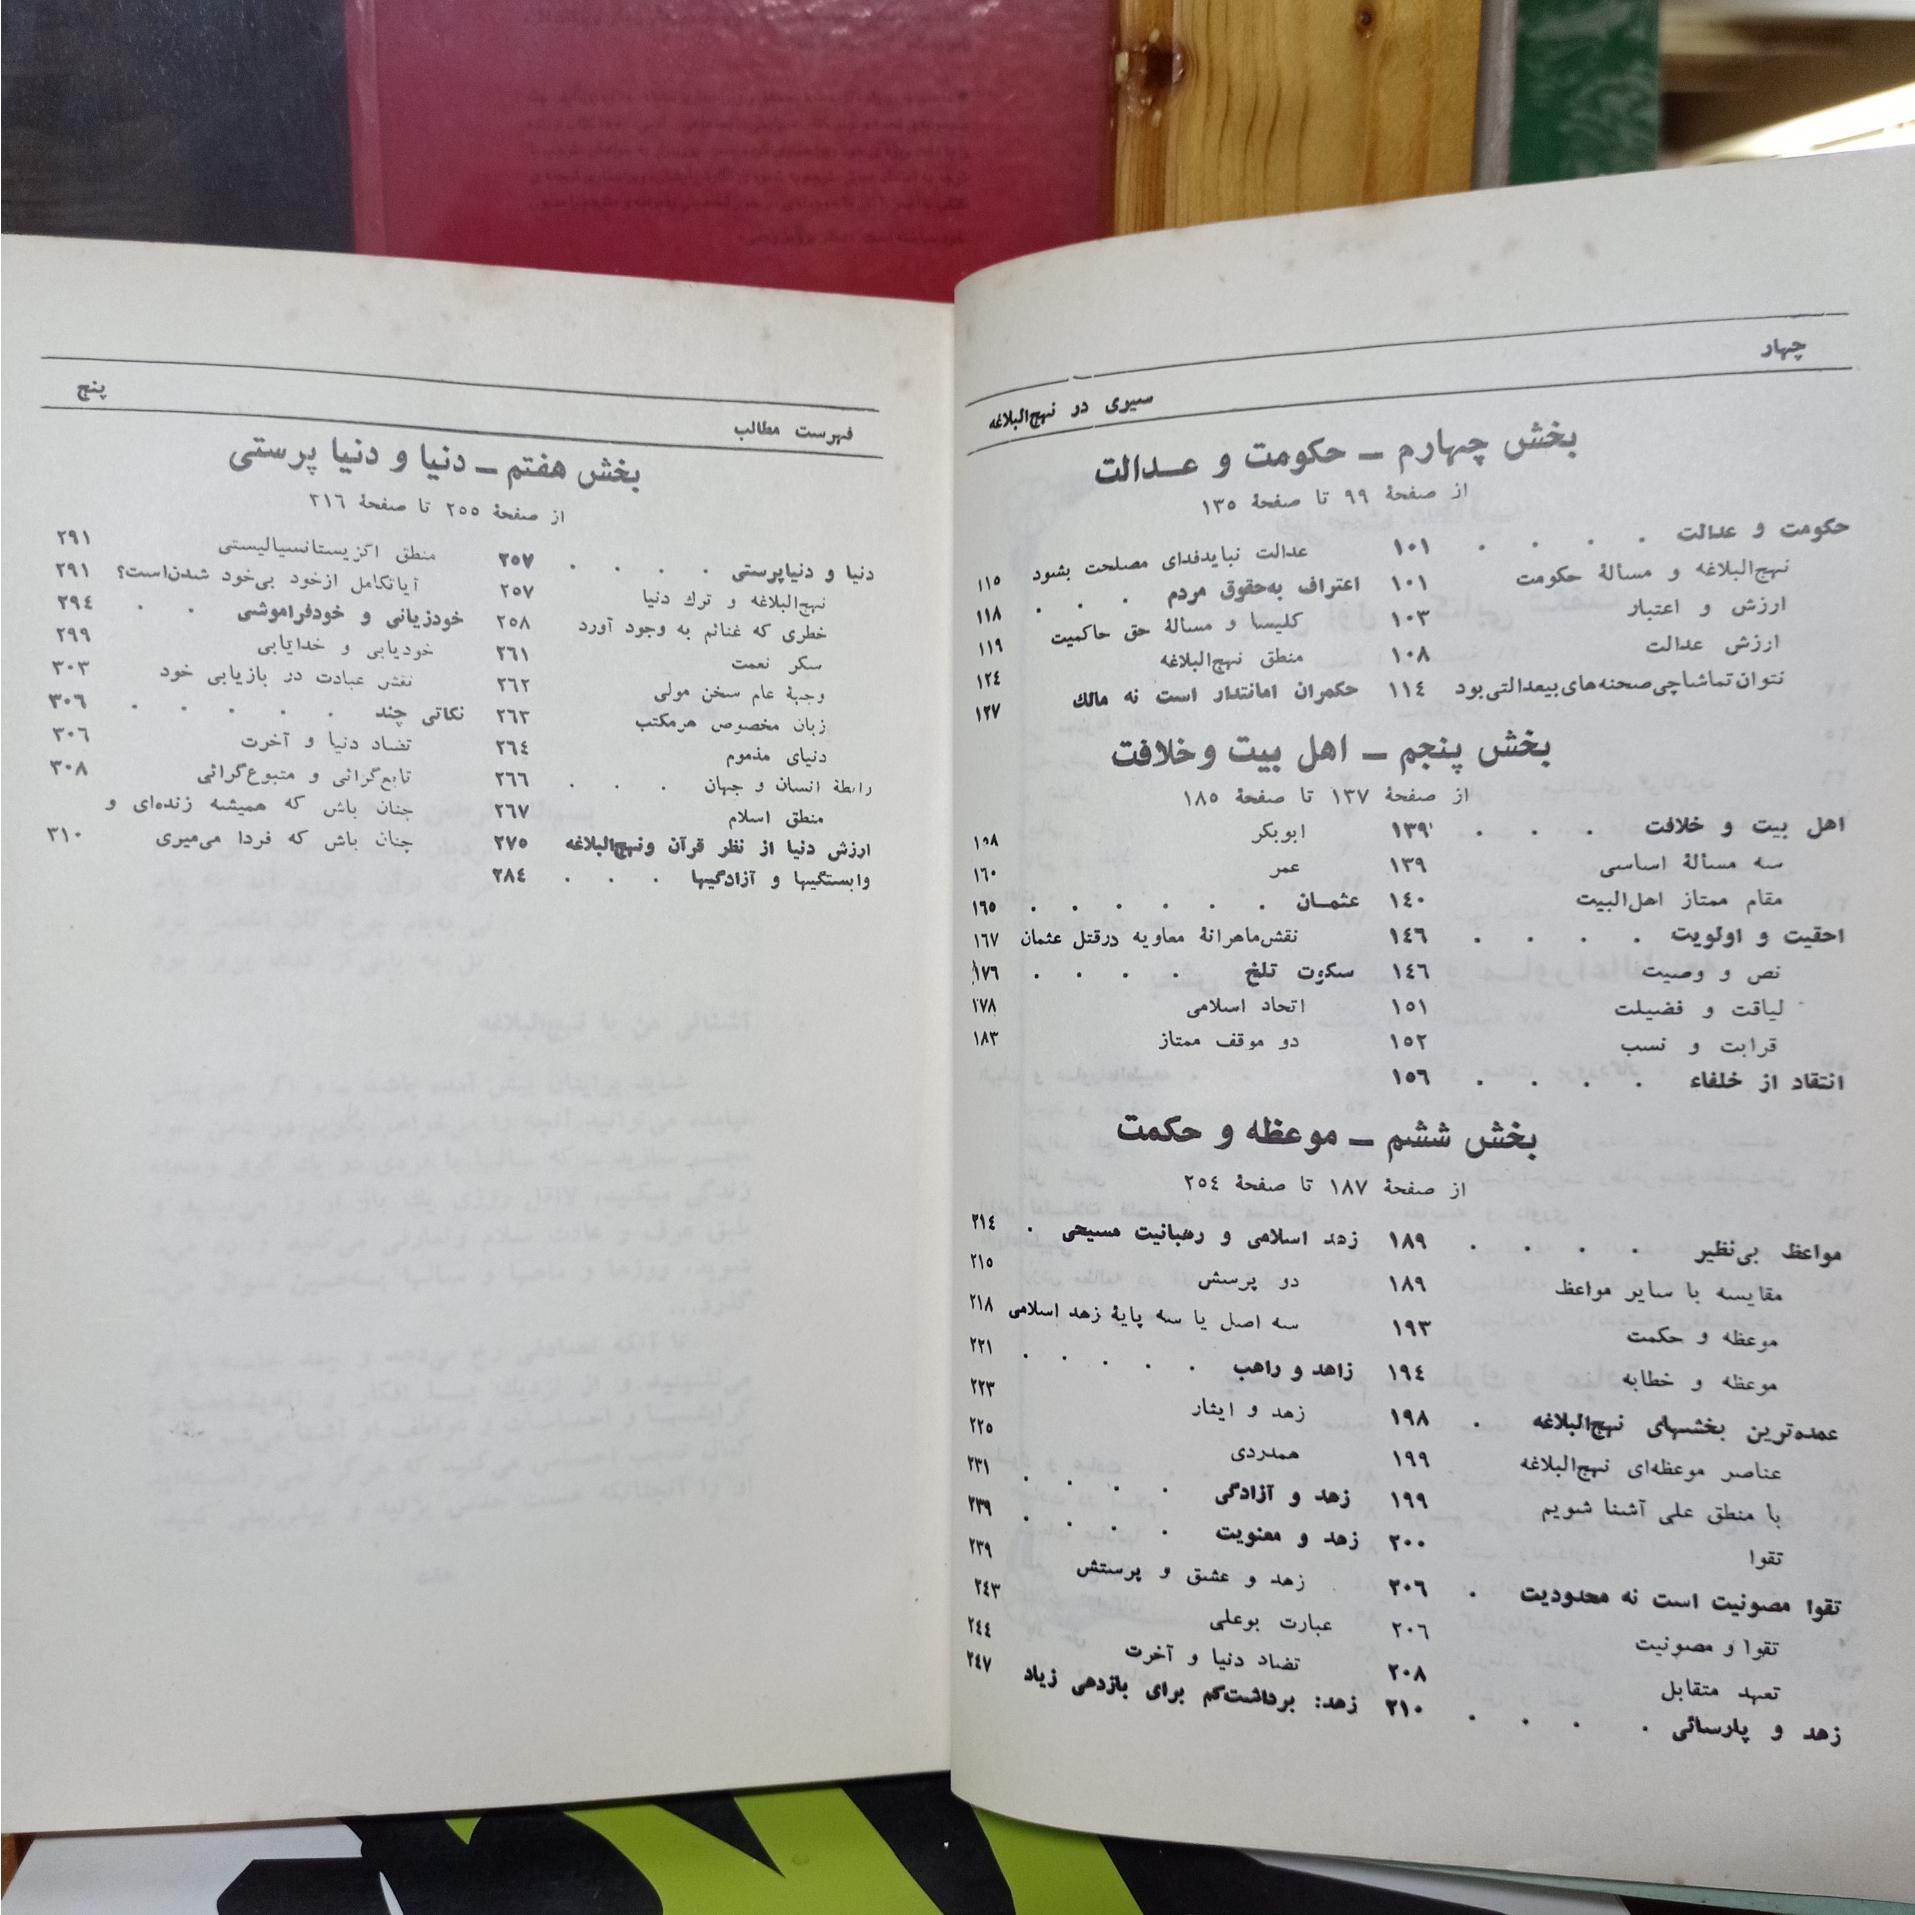 چهار
سیری در نهج‌البلاغه
بخش چهارم ــ حکومت و عــدالت
از صفحهٔ ۹۹ تا صفحهٔ ۱۳۵
حکومت و عدالت . . . . ۱۰۱
نهج‌البلاغه و مسألهٔ حکومت ۱۰۱
ارزش و اعتبار ۱۰۳
ارزش عدالت ۱۰۸
نتوان تماشاچی صحنه‌های بیعدالتی بود ۱۱۴
عدالت نباید فدای مصلحت بشود ۱۱۵
اعتراف به‌حقوق مردم . . . ۱۱۸
کلیسا و مسألهٔ حق حاکمیت ۱۱۹
منطق نهج‌البلاغه ۱۲۴
حکمران امانتدار است نه مالك ۱۲۷
بخش پنجم ــ اهل بیت و خلافت
از صفحهٔ ۱۳۷ تا صفحهٔ ۱۸۵
اهل بیت و خلافت . . . ۱۳۹
سه مسألهٔ اساسی ۱۳۹
مقام ممتاز اهل‌البیت ۱۴۰
احقیت و اولویت . . . . ۱۴۶
نص و وصیت ۱۴۶
لیاقت و فضیلت ۱۵۱
قرابت و نسب ۱۵۲
انتقاد از خلفاء . . . . ۱۵۶
ابوبکر ۱۵۸
عمر ۱۶۰
عثمـان . . . . . . ۱۶۵
نقش ماهرانهٔ معاویه در قتل عثمان ۱۶۷
سکوت تلخ . . . . ۱۷۶
اتحاد اسلامی ۱۷۸
دو موقف ممتاز ۱۸۳
بخش ششم ــ موعظه و حکمت
از صفحهٔ ۱۸۷ تا صفحهٔ ۲۵۴
مواعظ بی‌نظیر . . . . ۱۸۹
مقایسه با سایر مواعظ ۱۸۹
موعظه و حکمت ۱۹۳
موعظه و خطابه ۱۹۴
عمده‌ترین بخشهای نهج‌البلاغه . ۱۹۸
عناصر موعظه‌ای نهج‌البلاغه ۱۹۹
با منطق علی آشنا شویم ۱۹۹
تقوا ۲۰۰
تقوا مصونیت است نه محدودیت . ۲۰۶
تقوا و مصونیت ۲۰۶
تعهد متقابل ۲۰۸
زهد و پارسائی . . . . ۲۱۰
زهد اسلامی و رهبانیت مسیحی . ۲۱۴
دو پرسش ۲۱۵
سه اصل یا سه پایهٔ زهد اسلامی ۲۱۸
زاهد و راهب . . . . . ۲۲۱
زهد و ایثار ۲۲۳
همدردی ۲۲۵
زهد و آزادگی . . . . ۲۳۱
زهد و معنویت . . . . ۲۳۹
زهد و عشق و پرستش ۲۳۹
عبارت بوعلی ۲۴۳
تضاد دنیا و آخرت ۲۴۴
زهد: برداشت‌کم برای بازدهی زیاد ۲۴۷
پنج
فهرست مطالب
بخش هفتم ــ دنیا و دنیا پرستی
از صفحهٔ ۲۵۵ تا صفحهٔ ۳۱۶
دنیا و دنیاپرستی . . . . ۲۵۷
نهج‌البلاغه و ترك دنیا ۲۵۷
خطری که غنائم به وجود آورد ۲۵۸
سکر نعمت ۲۶۱
وجههٔ عام سخن مولی ۲۶۲
زبان مخصوص هرمکتب ۲۶۳
دنیای مذموم ۲۶۴
رابطهٔ انسان و جهان . . . ۲۶۶
منطق اسلام ۲۶۷
ارزش دنیا از نظر قرآن و نهج‌البلاغه ۲۷۵
وابستگیها و آزادگیها . . . ۲۸۴
منطق اگزیستانسیالیستی ۲۹۱
آیا تکامل ازخود بی‌خود شدن‌است؟ ۲۹۱
خودزیانی و خودفراموشی . . ۲۹۴
خودیابی و خدایابی ۲۹۹
نقش عبادت در بازیابی خود ۳۰۳
نکاتی چند . . . . . . ۳۰۶
تضاد دنیا و آخرت ۳۰۶
تابع‌گرائی و متبوع‌گرائی ۳۰۸
چنان باش که همیشه زنده‌ای و
چنان باش که فردا می‌میری ۳۱۰